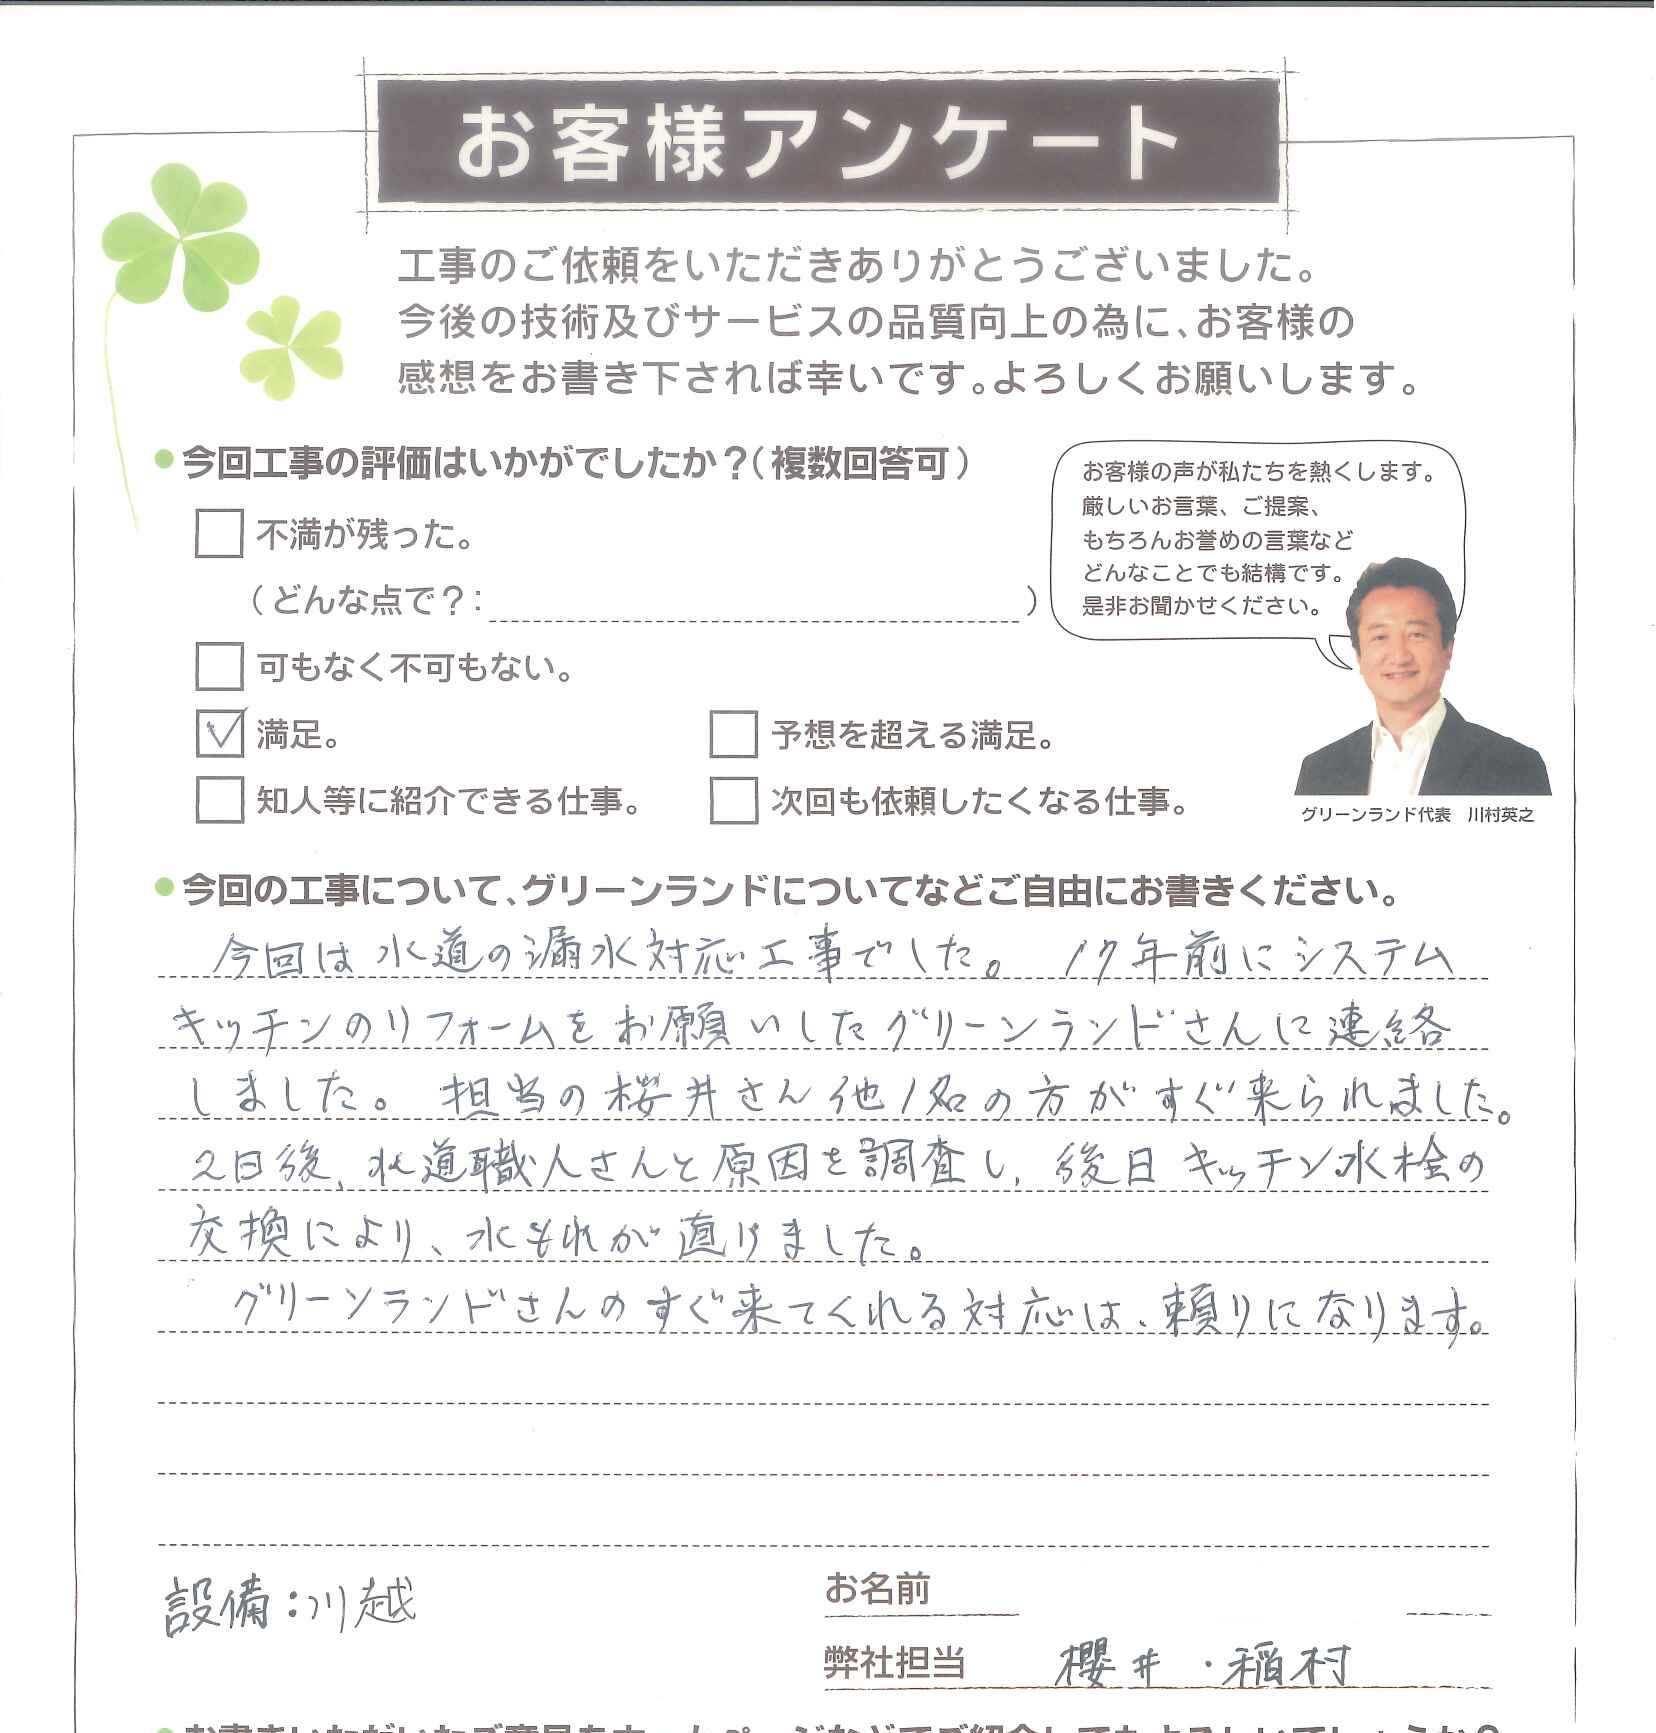 お客様アンケート
工事のご依頼をいただきありがとうございました。
今後の技術及びサービスの品質向上の為に、お客様の
感想をお書き下されば幸いです。よろしくお願いします。
今回工事の評価はいかがでしたか？（複数回答可）
不満が残った。
（どんな点で？：　）
可もなく不可もない。
満足。
予想を超える満足。
知人等に紹介できる仕事。
次回も依頼したくなる仕事。
お客様の声が私たちを熱くします。
厳しいお言葉、ご提案、
もちろんお誉めの言葉など
どんなことでも結構です。
是非お聞かせください。
グリーンランド代表　川村英之
今回の工事について、グリーンランドについてなどご自由にお書きください。
今回は水道の漏水対応工事でした。　17年前にシステム
キッチンのリフォームをお願いしたグリーンランドさんに連絡
しました。担当の桜井さん他1名の方がすぐ来られました。
2日後、水道職人さんと原因を調査し、後日キッチン水栓の
交換により、水もれが直りました。
グリーンランドさんのすぐ来てくれる対応は、頼りになります。
設備：川越
お名前
弊社担当　櫻井・稲村
お書きいただいたご意見をホームページなどでご紹介してもよろしいでしょうか？